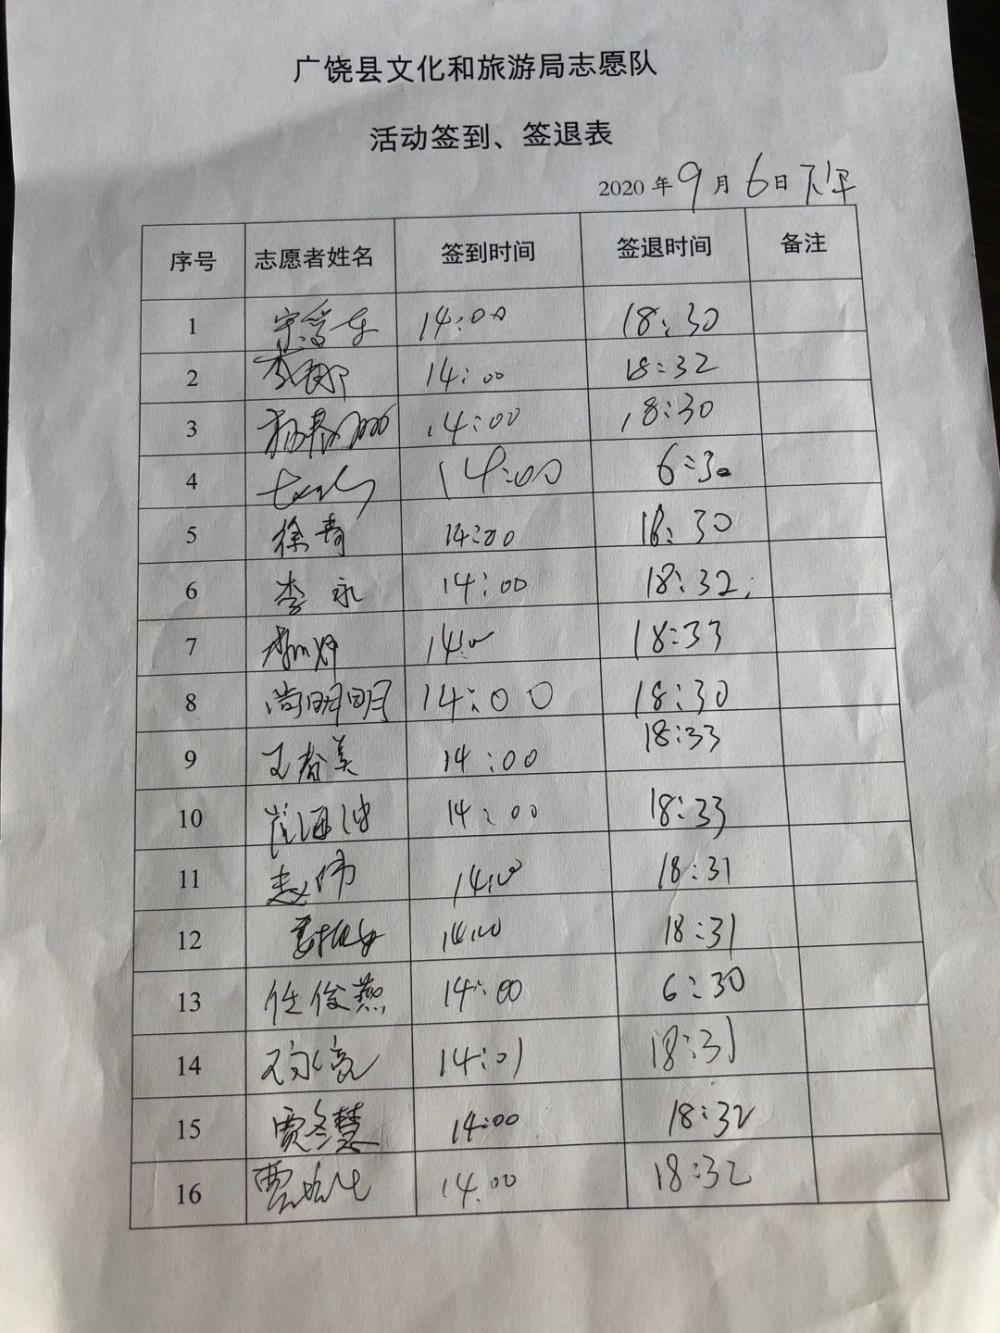 广饶县文化和旅游局志愿队
活动签到、签退表
2020年9月6日下午
序号 志愿者姓名 签到时间 签退时间 备注
1 14:00 18:30
2 李娜 14:00 18:32
3 14:00 18:30
4 14:00 6:30
5 徐青 14:00 18:30
6 李永 14:00 18:32
7 14:00 18:33
8 尚明明 14:00 18:30
9 王春美 14:00 18:33
10 14:00 18:33
11 赵伟 14:00 18:31
12 14:00 18:31
13 任俊燕 14:00 6:30
14 14:01 18:31
15 贾冬慧 14:00 18:32
16 贾 14:00 18:32